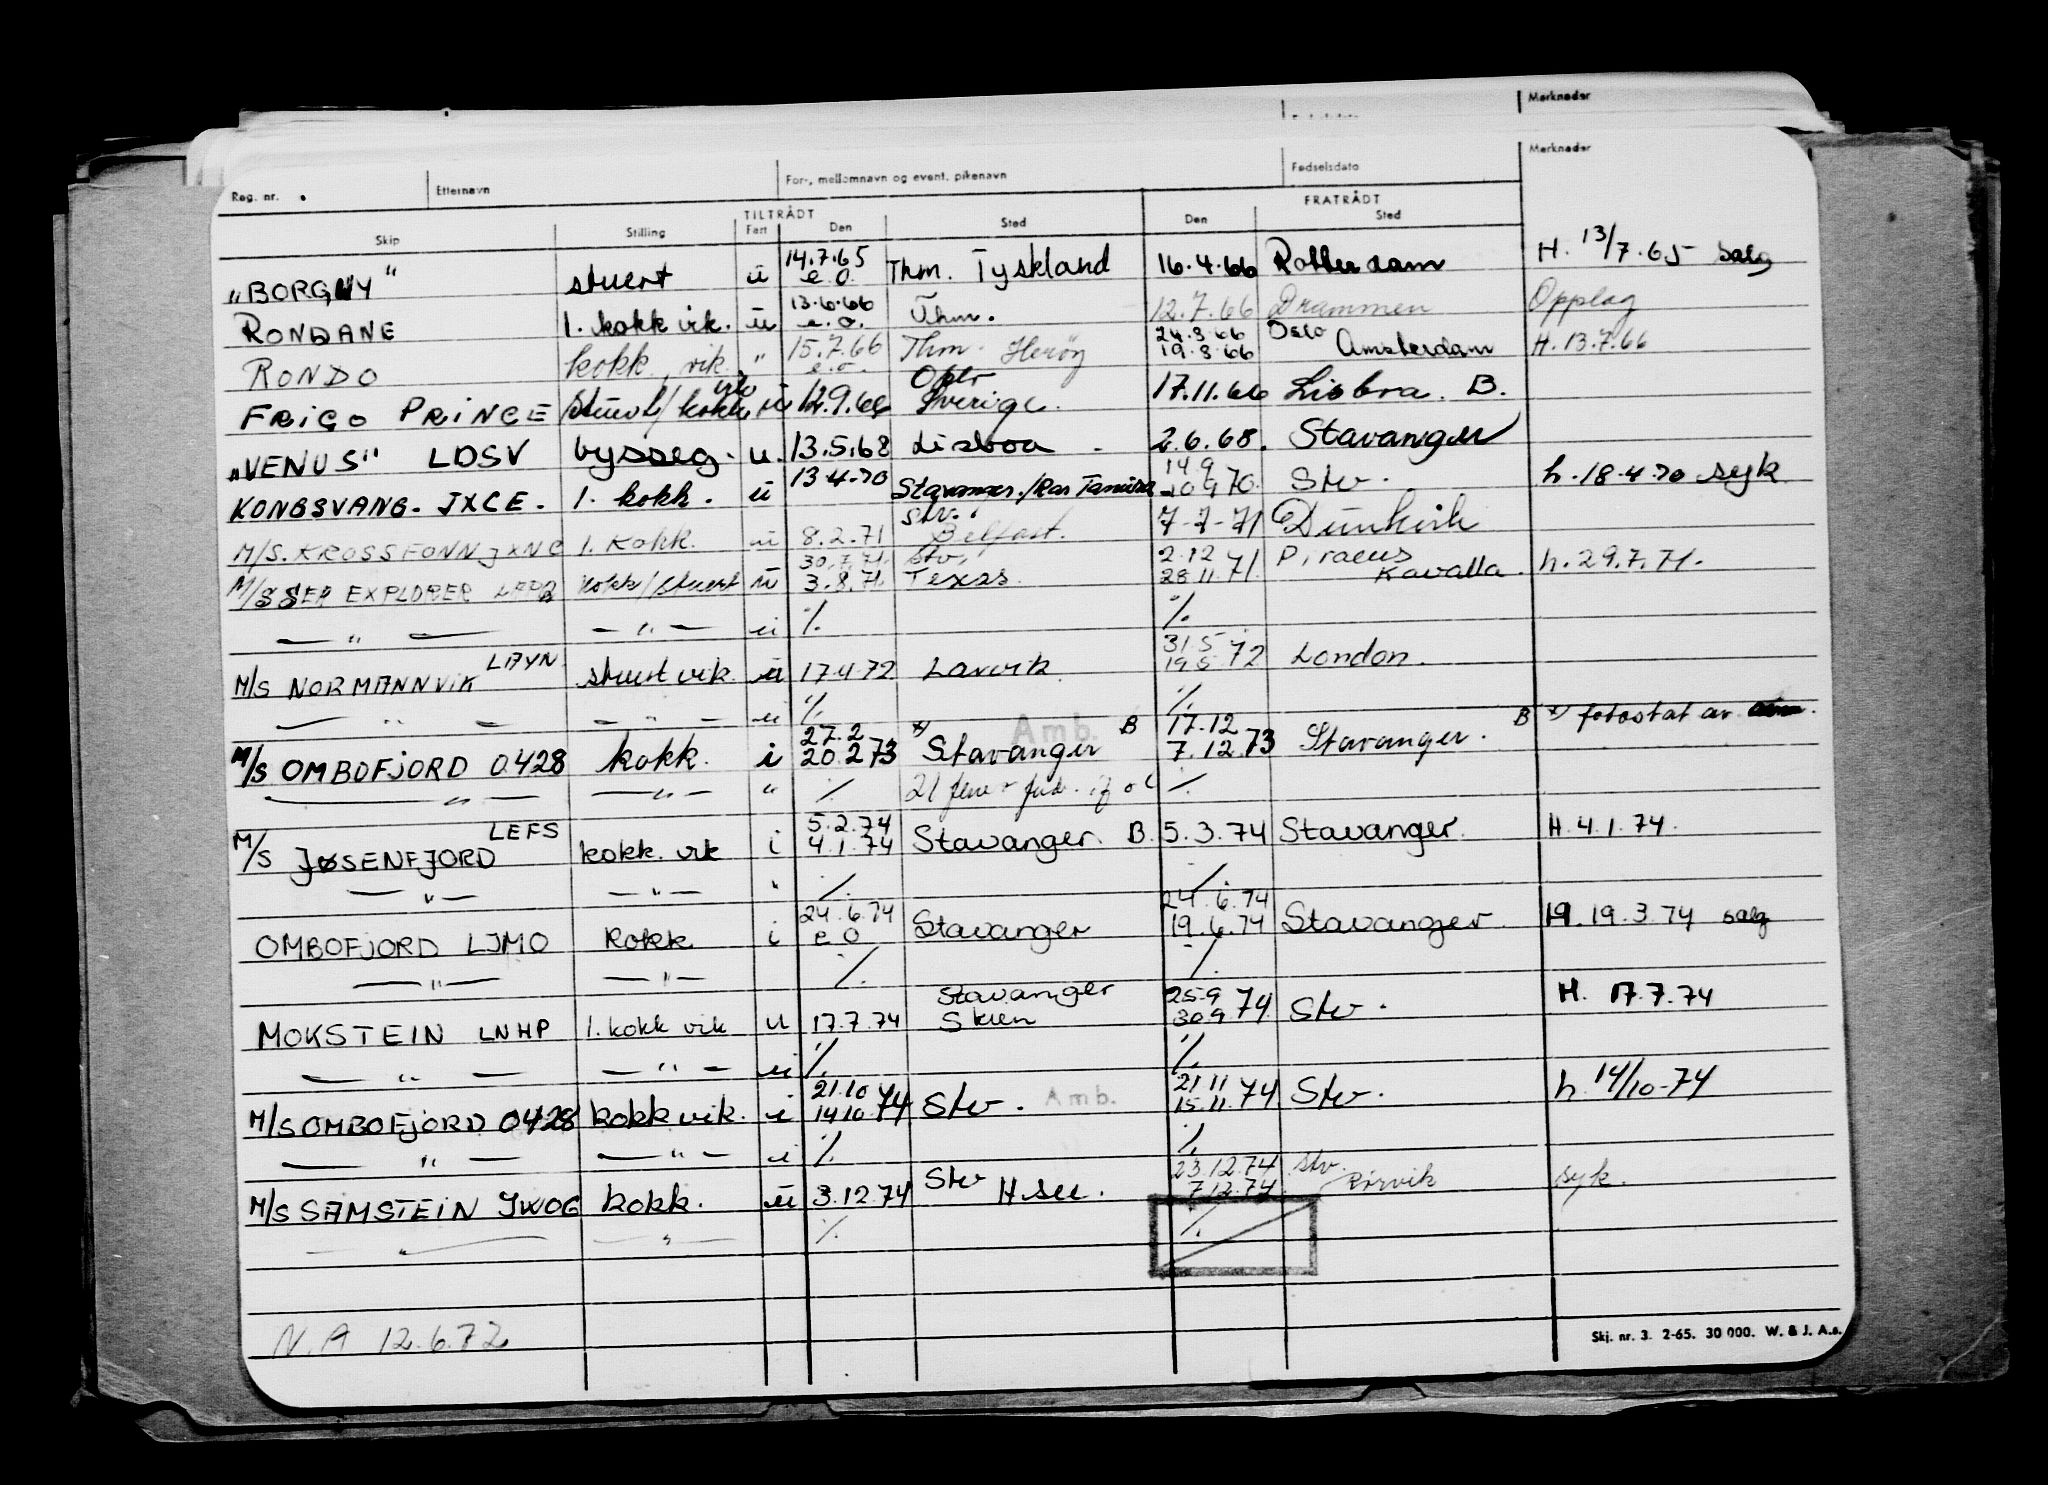 Merknader
Merknader
Reg. nr. Etternavn For-, mellomnavn og event. pikenavn Fødselsdato
TILTRÅDT FRATRÅDT
Skip Stilling Fart Den Sted Den Sted
14.7.65
"BORGNY" stuert u e.o. Thm. Tyskland 16.4.66 Rotterdam H. 13/7.65 salg
13.6.66
RONDANE 1. kokk vik. u e.o. Uhm. 12.7.66 Drammen Opplag
15.7.66 24.8.66 Oslo
RONDO kokk vik. " e.o. Thm. Herøy 19.8.66 Amsterdam H. 13.7.66
vik
FRIGO PRINCE stuert/kokk u 12.9.66 Sverige. 17.11.66 Lisboa. B.
"VENUS" LDSV bysseg. u. 13.5.68 Lisboa 2.6.68. Stavanger
KONGSVANG. JXCE. 1. kokk. u 13.4.70 Stavanger./Ras Tanura 14 9 70 Stv. h. 18.4.70 syk
Stv.
M/S. KROSSFONN JXNC 1. Kokk. u 8.2.71 Belfast. 7-7-71 Dunkirk
30.7.71. Stv. 2.12 Piraeus
M/S SEA EXPLORER kokk/stuert u 3.8.71. Texas. 28.11.71. Kavalla. h. 29.7.71.
— " — — " — u ./. ./.
LAYN 31.5
M/S NORMANNVIK stuert vik. u 17.4.72 Larvik 19.5 72 London.
— " — — " — u ./. ./.
27.2 Amb. B 17.12 B x) fotostat av
M/S OMBOFJORD 0428 kokk. i 20.2.73 x) Stavanger 7.12.73 Stavanger.
— " — — " — " ./. 21 ./.
LEFS 5.2.74
M/S JØSENFJORD kokk. vik i 4.1.74 Stavanger. B. 5.3.74 Stavanger. H. 4.1.74.
— " — — " — " ./. ./.
24.6.74 24.6.74
OMBOFJORD LJMO Kokk i e O Stavanger 19.6.74 Stavanger. H. 19.3.74 salg
— " — — " — ./. ./.
Stavanger 25.9
MOKSTEIN LNHP 1. kokk vik u 17.7.74 Skien 30.9 74 Stv. H. 17.7.74
— " — — " — u ./. ./.
21.10 21.11
M/S OMBOFJORD 0428 kokk vik. i 14.10.74 Stv. Amb. 15.11.74 Stv. h. 14/10-74
— " — — " — i ./. ./.
Stv 23.12.74 Stv.
M/S SAMSTEIN JWOG kokk. u 3.12.74 7.12.74 Rørvik syk.
— " — — " — ./. ./.
N.A 12.6.72
Skj. nr. 3. 2-65. 30 000. W. & J. A.s.